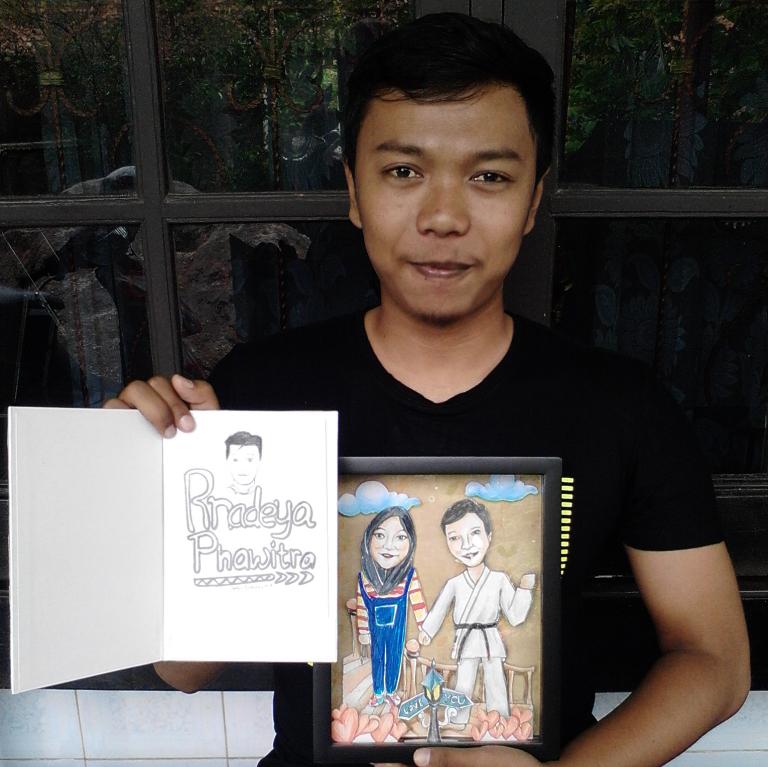 Rnadeya
Phawitra
Love YOU